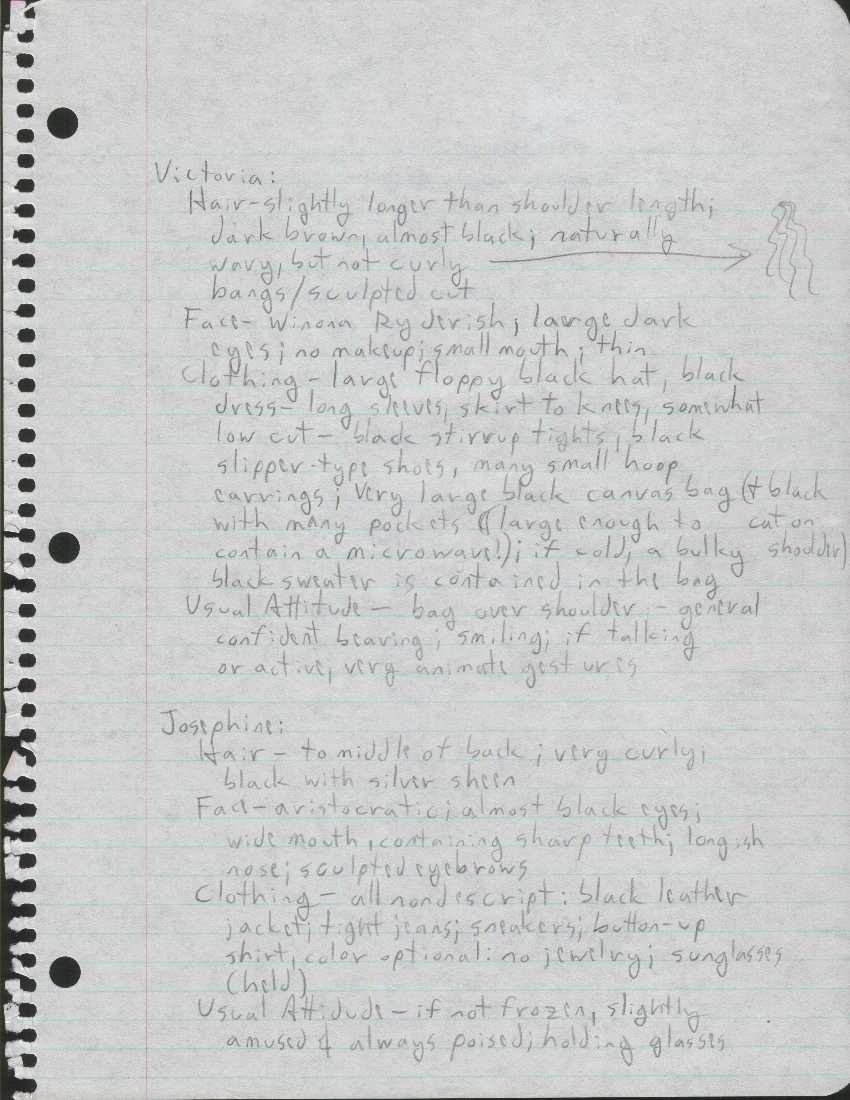 Victoria:
Hair-slightly longer than shoulder length;
dark brown, almost black; naturally
wavy, but not curly
bangs/sculpted cut
Face- Winona Ryderish; large dark
eyes; no makeup; small mouth; thin
Clothing - large floppy black hat, black
dress- long sleeves, skirt to knees, somewhat
low cut- black stirrup tights, black
slipper-type shoes, many small hoop
earrings; very large black canvas bag (+ black
with many pockets ((large enough to cat on
contain a microwave!); if cold, a bulky shoulder)
black sweater is contained in the bag
Usual Attitude - bag over shoulder - general
confident bearing; smiling; if talking
or active, very animate gestures
Josephine:
Hair - to middle of back; very curly;
black with silver sheen
Face-aristocratic; almost black eyes;
wide mouth, containing sharp teeth; longish
nose; sculpted eyebrows
Clothing - all nondescript: black leather
jacket; tight jeans; sneakers; button-up
shirt, color optional: no jewelry; sunglasses
(held)
Usual Attidude - if not frozen, slightly
amused & always poised; holding glasses